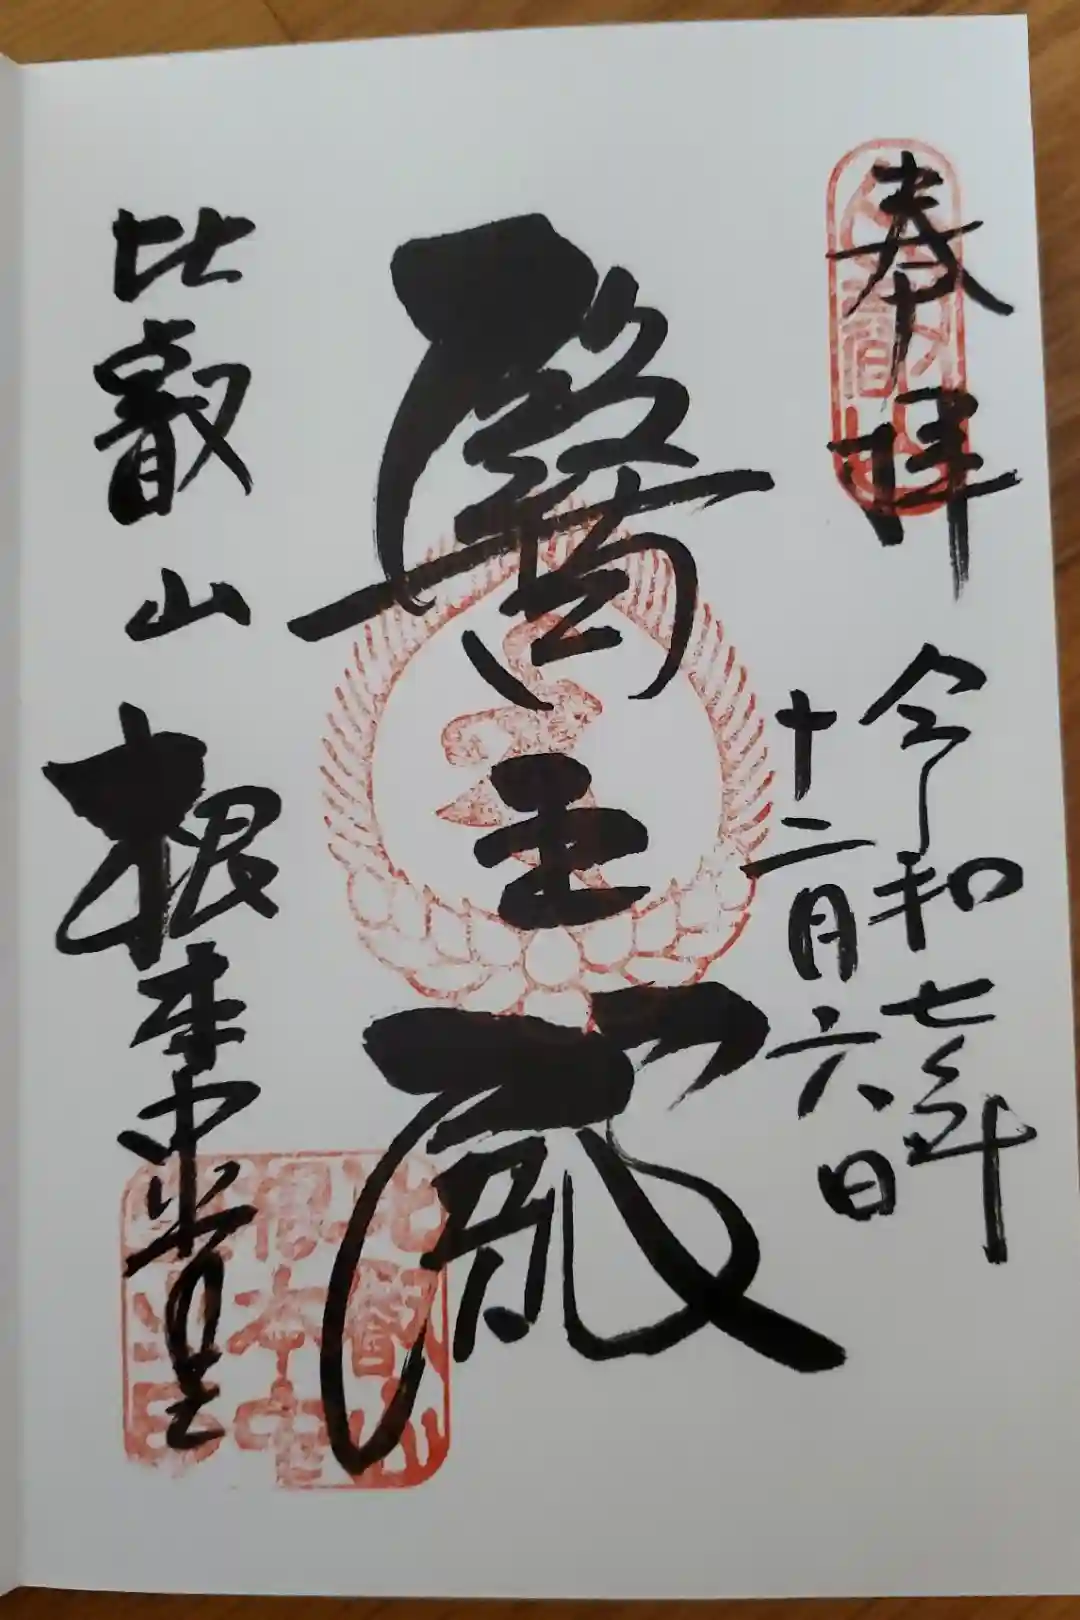 奉拝
令和七年
十二月六日
醫王殿
比叡山
根本中堂
比叡山
根本中
堂之印